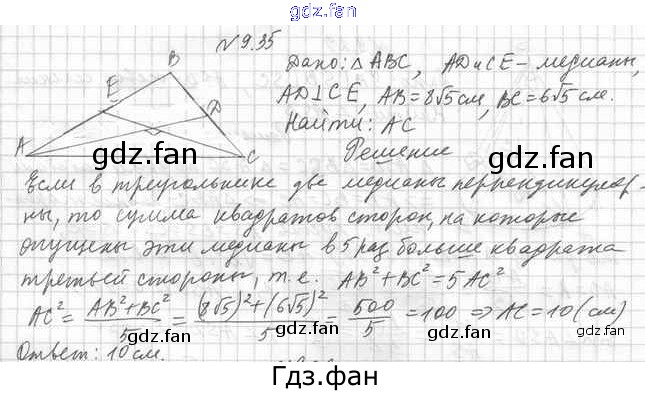 gdz.fan
№9.35
Дано: △ABC, AD и CE – медианы,
AD⊥CE, AB=8√5 см, BC=6√5 см.
Найти: AC
B
E
D
A
C
gdz.fan
gdz.fan
Решение
Если в треугольнике две медианы перпендикуляр-
ны, то сумма квадратов сторон, на которые
опущены эти медианы в 5 раз больше квадрата
третьей стороны, т.е. AB²+BC²=5AC²
AC² = (AB²+BC²)/5 = ((8√5)²+(6√5)²)/5 = 500/5 = 100 ⇒ AC=10 (см)
gdz.fan
gdz.fan
gdz.fan
Ответ: 10 см.
Гдз.фан